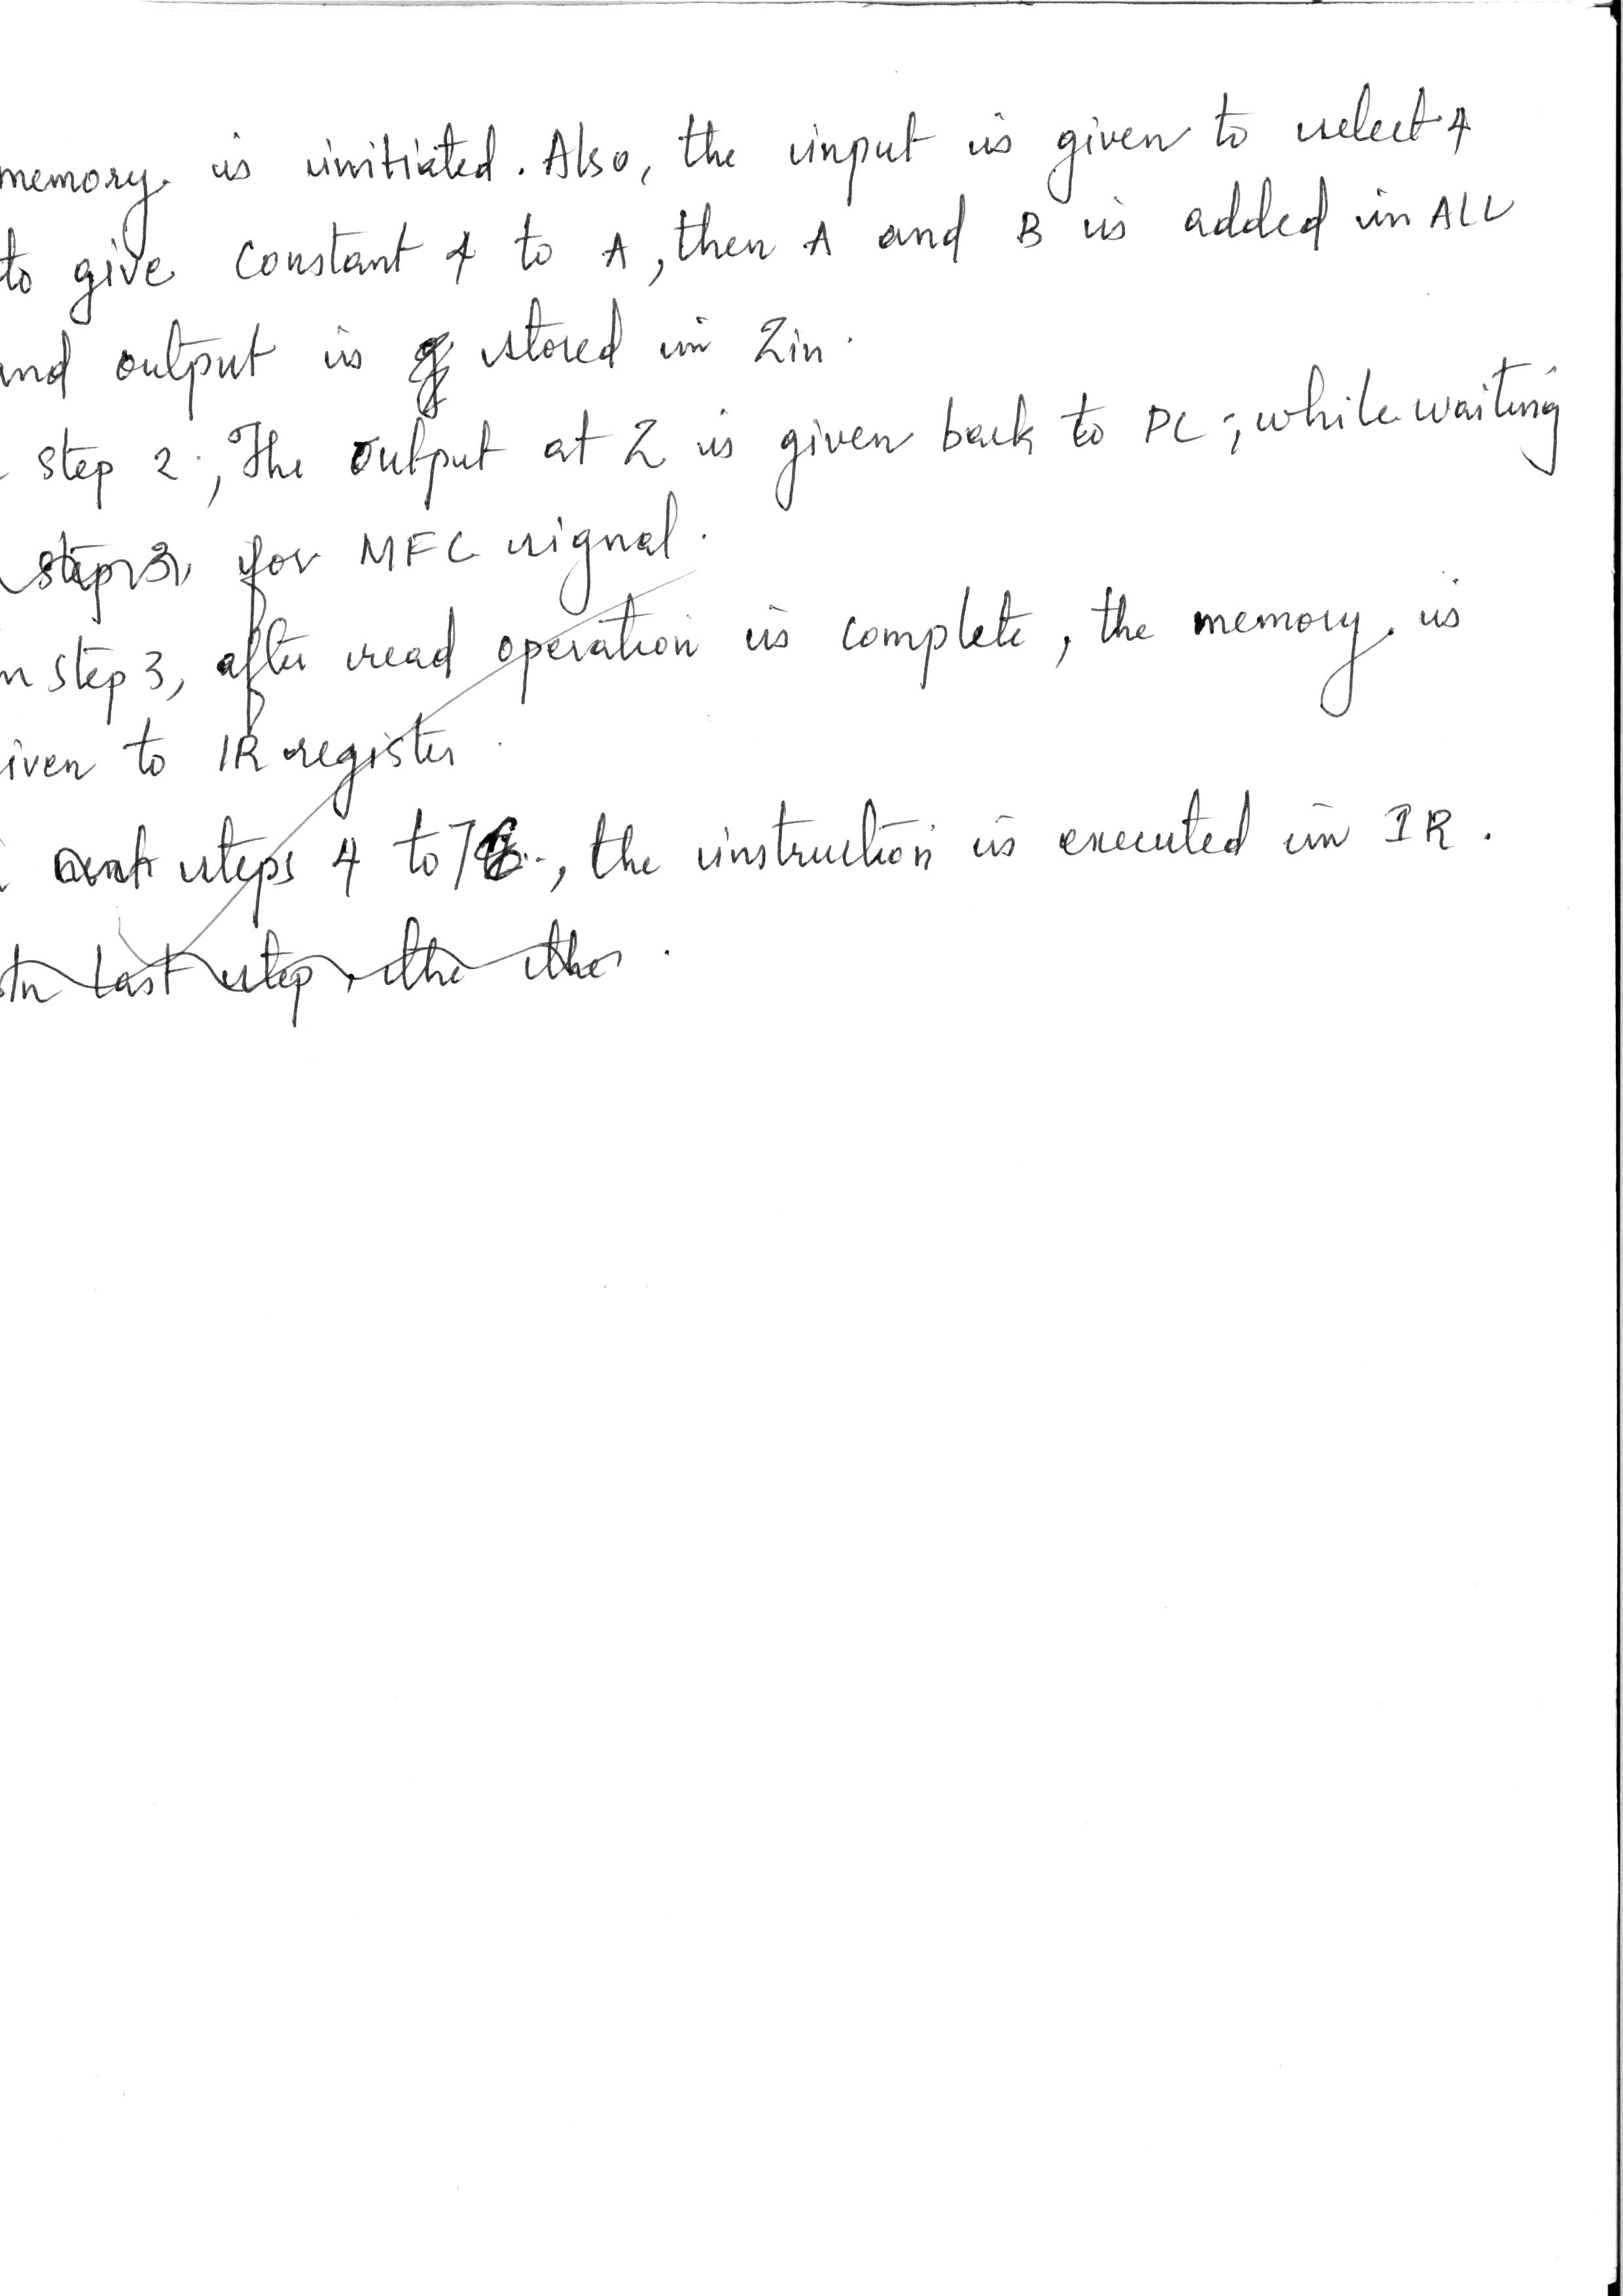 memory is initiated. Also, the input is given to select 4
to give constant 4 to A, then A and B is added in ALU
and output is stored in Zin.
step 2, The output at Z is given back to PC, while waiting
for MFC signal.
n step 3, after read operation is complete, the memory is
iven to IR register.
steps 4 to 7, the instruction is executed in IR.
In last step, the the